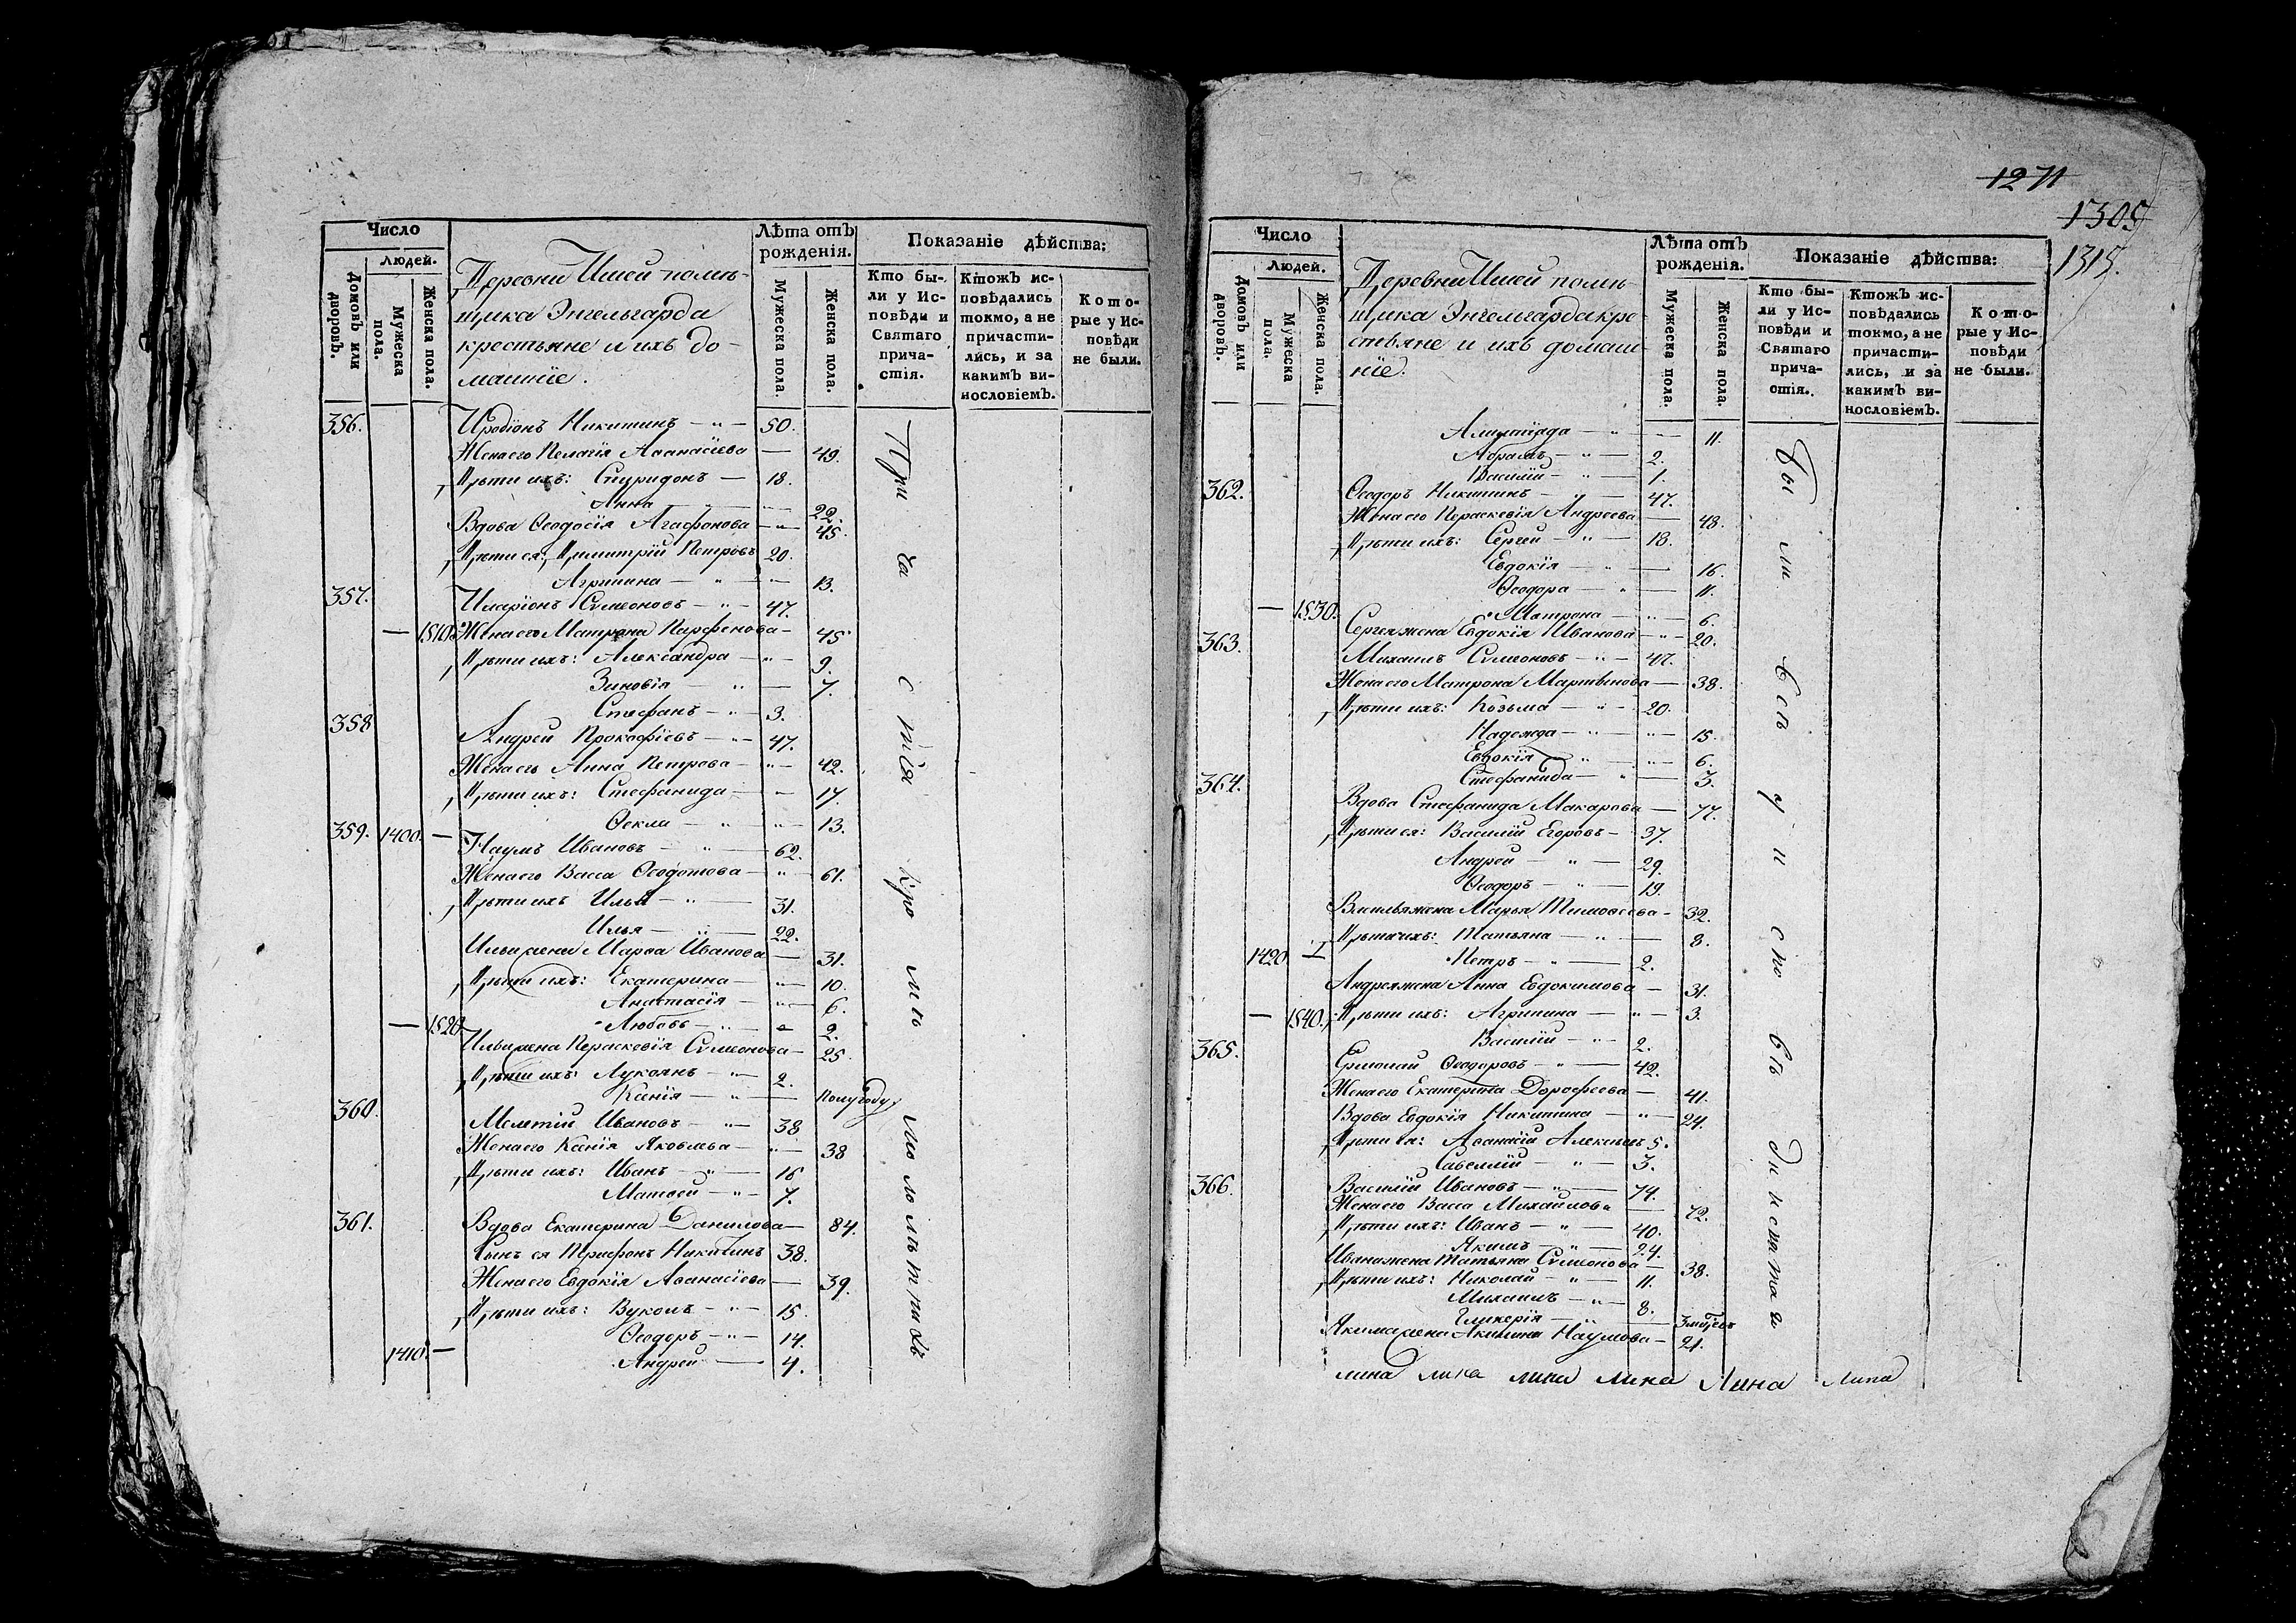 Число
Людей.
Домовъ или дворовъ.
Мужеска пола.
Женска пола.
Деревни Ишей помѣ-
щика Энгельгарда
крестьяне и ихъ до-
машніе.
Лѣта отъ рожденія.
Мужеска пола.
Женска пола.
Показаніе дѣйства:
Кто бы-
ли у Ис-
повѣди и
Святаго
прича-
стія.
Ктожъ ис-
повѣдались
токмо, а не
причасти-
лись, и за
какимъ ви-
нословіемъ.
Кото-
рые у Ис-
повѣди
не были.
356. Иродіонъ Никитинъ — „ — 50.
Жена его Пелагія Аѳанасіева — 49.
Дѣти ихъ: Спиридонъ — 18.
Анна — 22.
Вдова Ѳеодосія Агафонова — „ — 45.
Дѣти ея: Димитрій Петровъ 20.
Агрипина — „ — 13.
357. Иларіонъ Сѵмеоновъ — „ — 47.
— 1510. Жена его Матрона Парфенова — 45
Дѣти ихъ: Александра — „ — 9.
Зиновія — „ — 7.
Стефанъ — „ — 3.
358 Андрей Прокофіевъ — „ — 47.
Жена его Анна Петрова — „ — 42.
Дѣти ихъ: Стефанида — 17.
Ѳекла — „ — 13.
359. 1400. — Наумъ Ивановъ — „ — 62.
Жена его Васса Ѳеодотова — „ — 61.
Дѣти ихъ Илья — „ — 31.
Илья — „ — 22.
Ильи жена Марѳа Иванова — 31.
Дѣти ихъ: Екатерина — „ — 10.
Анастасія — „ — 6.
— 1520. Любовь — „ — 2.
Ильи жена Параскевія Сѵмеонова — 25.
Дѣти ихъ: Лукоянъ — „ — 2.
Ксенія — „ — полугоду
360. Мелетій Ивановъ — „ — 38
Жена его Ксенія Яковлева — „ — 38
Дѣти ихъ: Иванъ — „ — 16
Матвей — „ — 7.
361. Вдова Екатерина Данилова — 84.
Сынъ ея Трифонъ Никитинъ 38.
Жена его Евдокія Аѳанасіева — 39.
Дѣти ихъ: Вуколъ — „ — 15.
Ѳеодоръ — „ — 14.
1410. — Андрей — 4.
При ча стія кро мѣ мо ло лѣт ни хъ
1271
1309
1315.
Число
Людей.
Домовъ или дворовъ.
Мужеска пола.
Женска пола.
Деревни Ишей помѣ
щика Энгельгарда кре
стьяне и ихъ домаш-
ніе.
Лѣта отъ рожденія.
Мужеска пола.
Женска пола.
Показаніе дѣйства:
Кто бы-
ли у Ис-
повѣди и
Святаго
прича-
стія.
Ктожъ ис-
повѣдались
токмо, а не
причасти-
лись, и за
какимъ ви-
нословіемъ.
Кото-
рые у Ис-
повѣди
не были.
Алимпіада — „ — 11.
Абрамъ — „ — 2.
Василій — „ — 1.
362. Ѳеодоръ Никитинъ — „ — 47.
Жена его Параскевія Андреева — 48.
Дѣти ихъ: Сергей — „ — 18.
Евдокія — „ — 16.
Ѳеодора — „ — 11.
— 1530. Матрона — „ — 6.
Сергея жена Евдокія Иванова — „ — 20.
363. Михаилъ Сѵмеоновъ — „ — 47.
Жена его Матрона Мартынова — 38.
Дѣти ихъ: Козьма — „ — 20.
Надежда — „ — 15.
Евдокія — „ — 6.
Стефанида — „ — 3.
364. Вдова Стефанида Макарова — 77.
Дѣти ея: Василій Егоровъ — 37.
Андрей — „ — 29.
Ѳеодоръ — „ — 19.
Василья жена Марья Тимоѳеева — 32.
Дѣти ихъ: Татьяна — „ — 8.
1420. — Петръ — „ — 2.
Андрея жена Анна Евдокимова — 31.
— 1540. Дѣти ихъ: Агрипина — „ — 3.
Василій — „ — 2.
365. Ермолай Ѳеодоровъ — „ — 42.
Жена его Екатерина Дорофеева — 41.
Вдова Евдокія Никитина — „ — 24.
Дѣти ея: Аѳанасій Алексѣевъ 5.
Савелій — „ — 3.
366. Василій Ивановъ — „ — 74.
Жена его Васса Михайлова — 72.
Дѣти ихъ: Иванъ — „ — 40.
Якимъ — „ — 24.
Ивана жена Татьяна Сѵмеонова — 38.
Дѣти ихъ: Николай — „ — 11.
Михаилъ — „ — 8.
Гликерія — 3 мѣсец
Якима жена Акилина Наумова — 21.
Бы ли всѣ у и спо вѣ ди и свя та го
лина лика лини лика Лина Липа